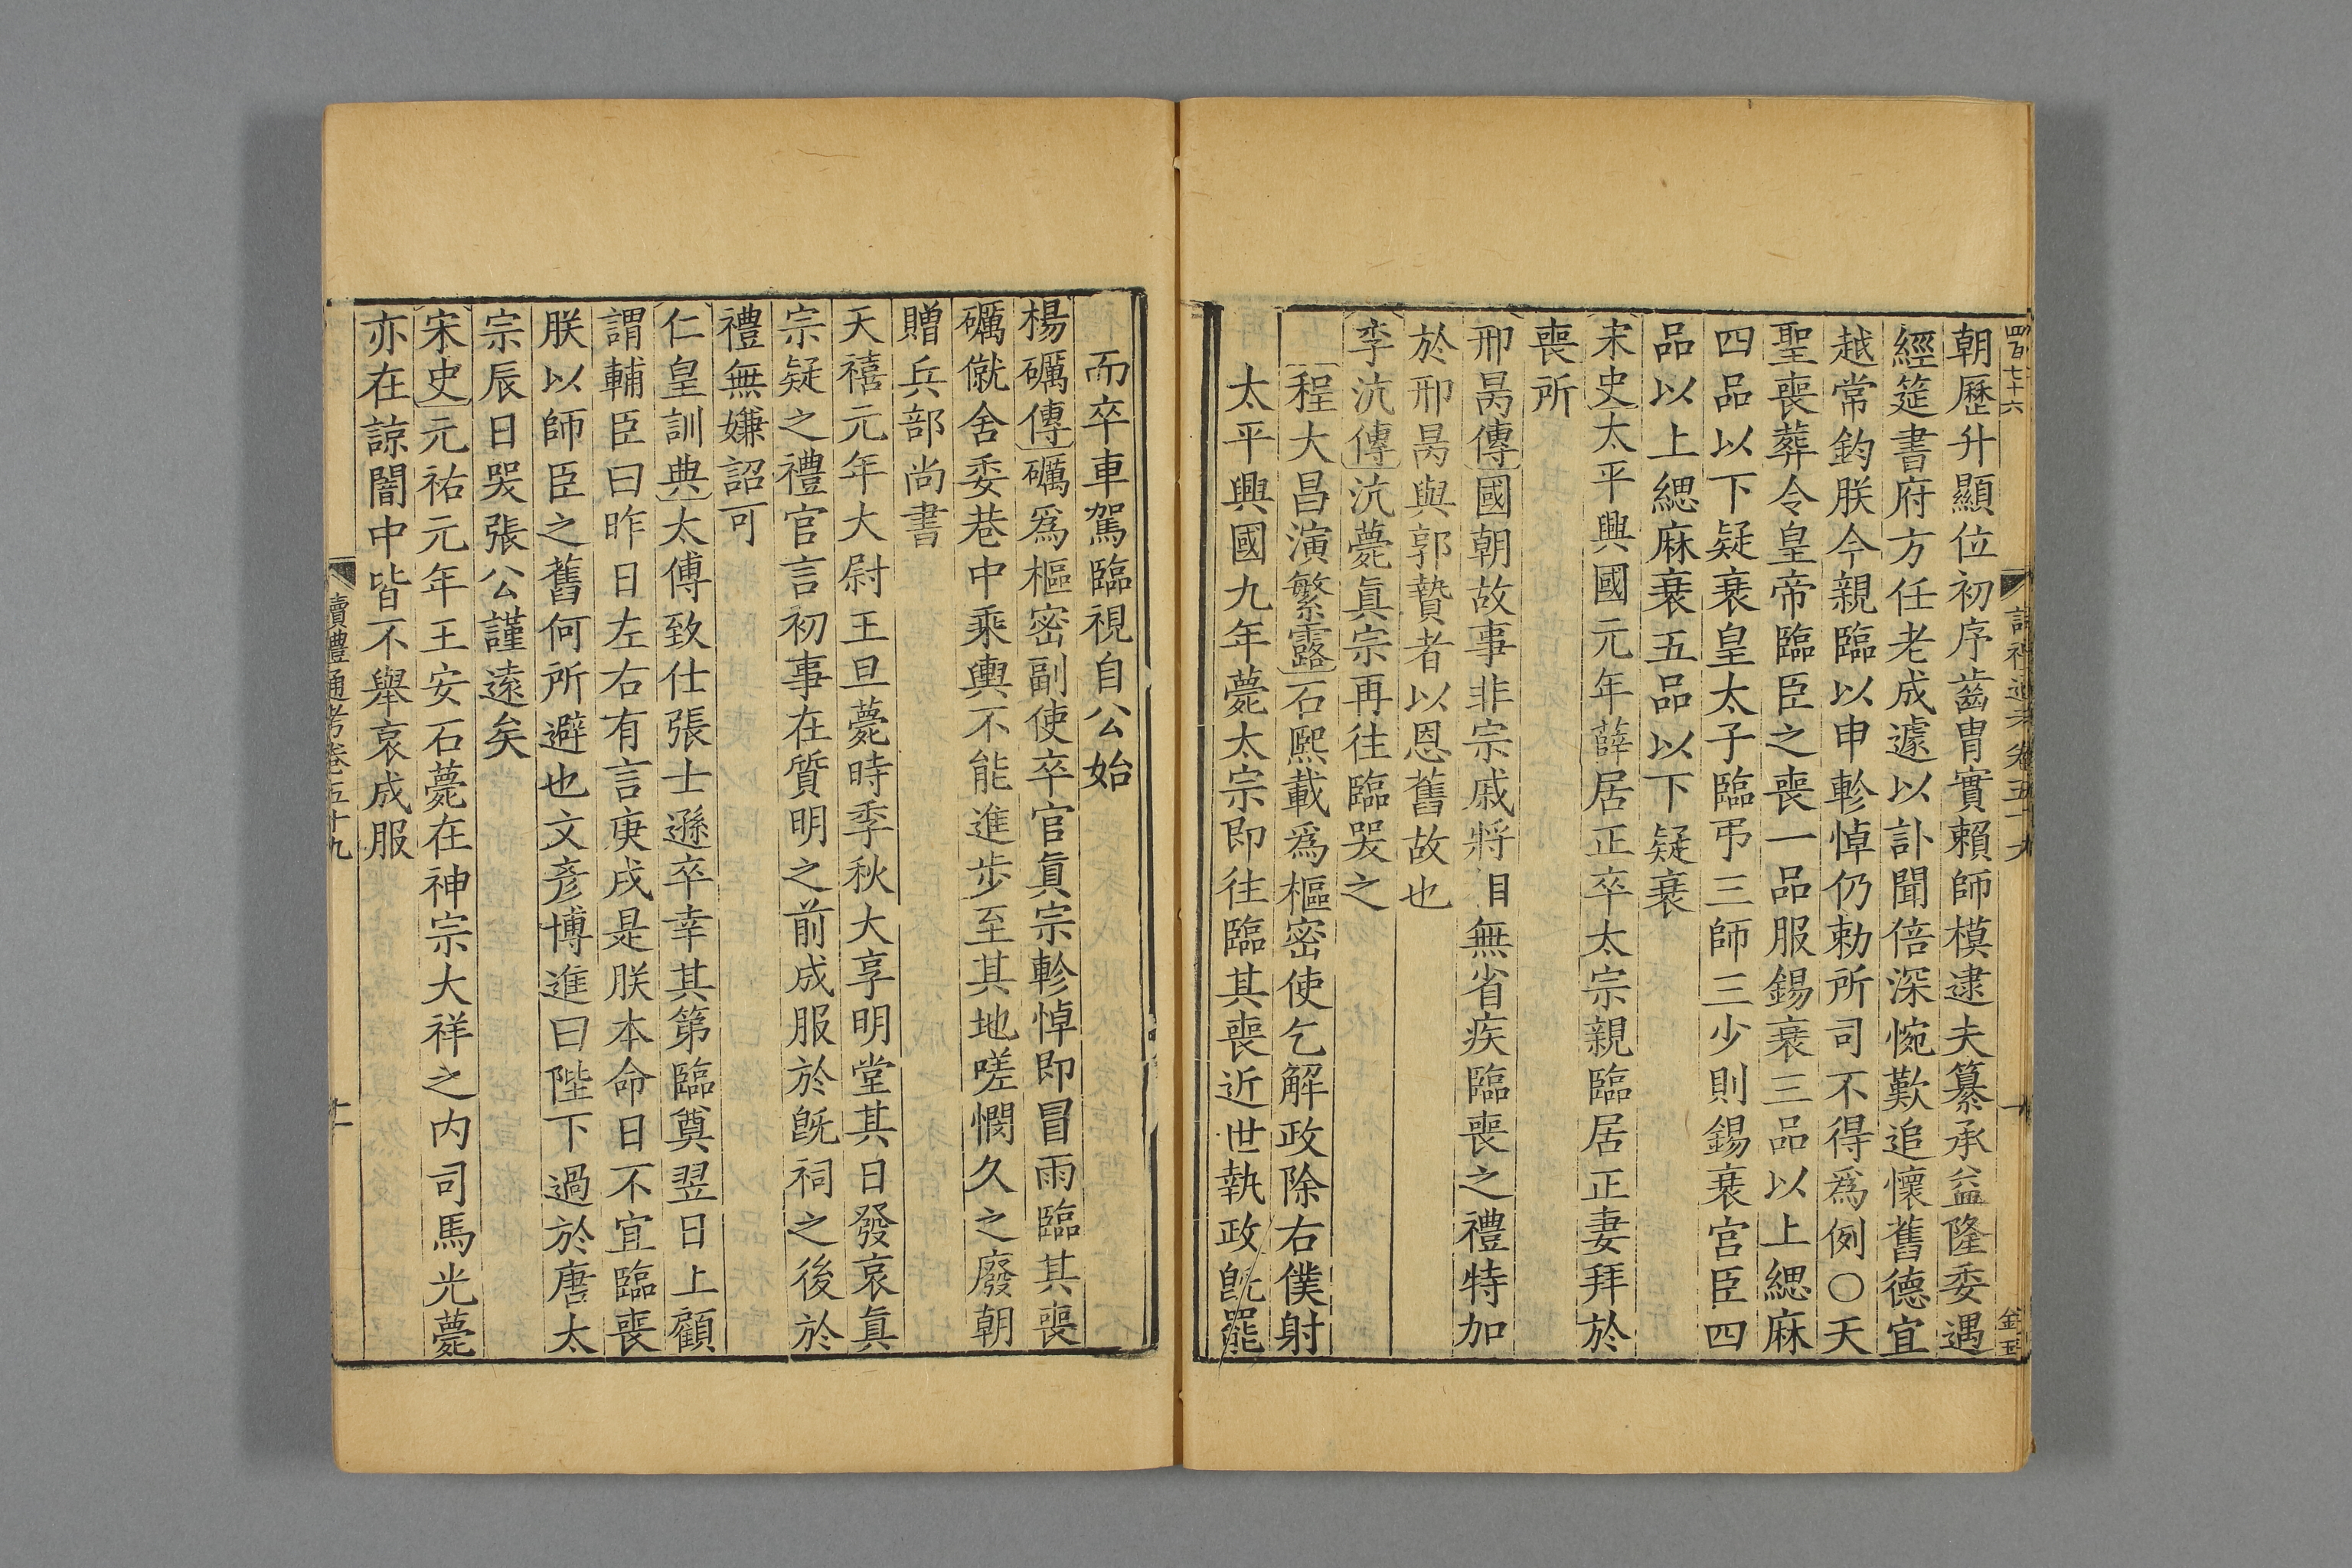 四百七十六
卷五十九
金玉
朝歷升顯位初序齒胄實賴師模逮夫纂承益隆委遇
經筵書府方任老成遽以訃聞倍深惋歎追懷舊德宜
越常鈞朕今親臨以申軫悼仍勅所司不得爲例○天
聖喪葬令皇帝臨臣之喪一品服錫衰三品以上緦麻
四品以下疑衰皇太子臨弔三師三少則錫衰宮臣四
品以上緦麻衰五品以下疑衰
宋史太平興國元年薛居正卒太宗親臨居正妻拜於
喪所
邢昺傳國朝故事非宗戚將相無省疾臨喪之禮特加
於邢昺與郭贄者以恩舊故也
李沆傳沆薨眞宗再往臨哭之
程大昌演繁露石熙載爲樞密使乞解政除右僕射
太平興國九年薨太宗即往臨其喪近世執政旣罷
而卒車駕臨視自公始
楊礪傳礪爲樞密副使卒官眞宗軫悼即冒雨臨其喪
礪僦舍委巷中乘輿不能進步至其地嗟憫久之廢朝
贈兵部尚書
天禧元年大尉王旦薨時季秋大享明堂其日發哀眞
宗疑之禮官言初事在質明之前成服於旣祠之後於
禮無嫌詔可
仁皇訓典太傅致仕張士遜卒幸其第臨奠翌日上顧
謂輔臣曰昨日左右有言庚戌是朕本命日不宜臨喪
朕以師臣之舊何所避也文彥博進曰陛下過於唐太
宗辰日哭張公謹遠矣
宋史元祐元年王安石薨在神宗大祥之內司馬光薨
亦在諒闇中皆不舉哀成服
讀禮通考卷五十九